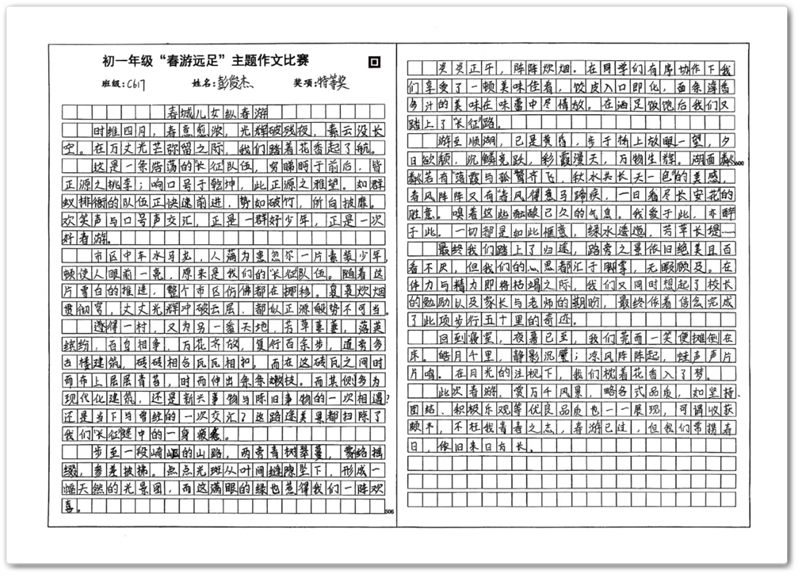 初一年级“春游远足”主题作文比赛
班级:C617 姓名:彭俊杰 奖项:特等奖
春城儿女纵春游
时维四月,春意愈浓,光辉破残夜,晨云没长
空。在万丈光芒弥留之际,我们踏着花香起了航。
这是一条浩荡的“长征”队伍,穷睇眄于前后,皆
正源之桃李;响口号于乾坤,此正源之雅望。如群
蚁排衙的队伍正快速前进,势如破竹,所向披靡。
欢笑声与口号声交汇,正是一群好少年,正是一次
好春游。
市区中车水马龙,人潮为患忽尔一片素装少年,
顿使人眼前一亮,原来是我们的“长征”队伍。随着这
片雪白的推进,整个市区仿佛都在挪移。袅袅炊烟
贯彻穹,丈丈光群冲破云层,都似正源般势不可当。
遵得一村,又为另一番天地,芳草萋萋,落英
缤纷,百鸟相争,万花齐放,复行百余步,道旁多
古楼建筑。砖砖相合瓦瓦相扣。而在这砖瓦之间时
而布上层层青苔,时而伸出条条嫩枝。而其侧多为
现代化建筑,还是新兴事物与陈旧事物的一次相遇?
还是当下与曾经的一次交汇?这路途美景都扫除了
我们“长征”途中的一身疲惫。
步至一段崎岖的山路,两旁青树翠蔓,蒙络摇
缀,参差披拂。点点光斑从叶间缝隙坠下,形成一
幅天然的光景图,而这满眼的绿也惹得我们一阵欢
喜。
506
炎炎正午,阵阵炊烟。在同学们有序协作下我
们享受了一顿美味佳肴,饺皮入口即化,面条薄香
多汁的美味在味蕾中尽情放。在酒足饭饱后我们又
踏上了“长征”路。
游至顺湖,已是黄昏,步于桥上放眼一望,夕
日欲颓,沉鳞竞跃,彩霞漫天,万物生辉。湖面
600
若有落霞与孤鹜齐飞,秋水共长天一色”的美感。
春风阵阵又有“春风得意马蹄疾,一日看尽长安花”的
胜意。嗅着这些酝酿已久的气息,我爱于此,亦醉
于此,一切都是如此惬意,绿水逶迤,芳草长堤……
最终我们踏上了归途,路旁之景依旧绝美且百
看不厌,但我们的心思都汇于脚掌,无暇顾及。在
体力与精力即将枯竭之际,我们又同时想起了校长
的勉励以及家长与老师的期盼,最终伴着信念完成
了此项步行五十里的奇迹。
回到寝室,夜幕已至,我们莞而一笑便摊倒在
床。皓月千里,静影沉璧;凉风阵阵起,蛙声声片
片鸣。在月光的注视下,我们枕着花香入了梦。
此次春游,赏万千风景,略各式品质,如坚持、
团结、积极乐观等优良品质也一一展现,可谓收获
颇丰,不枉我青春之志,春游已过,但我们常拥春
日,依旧来日方长。